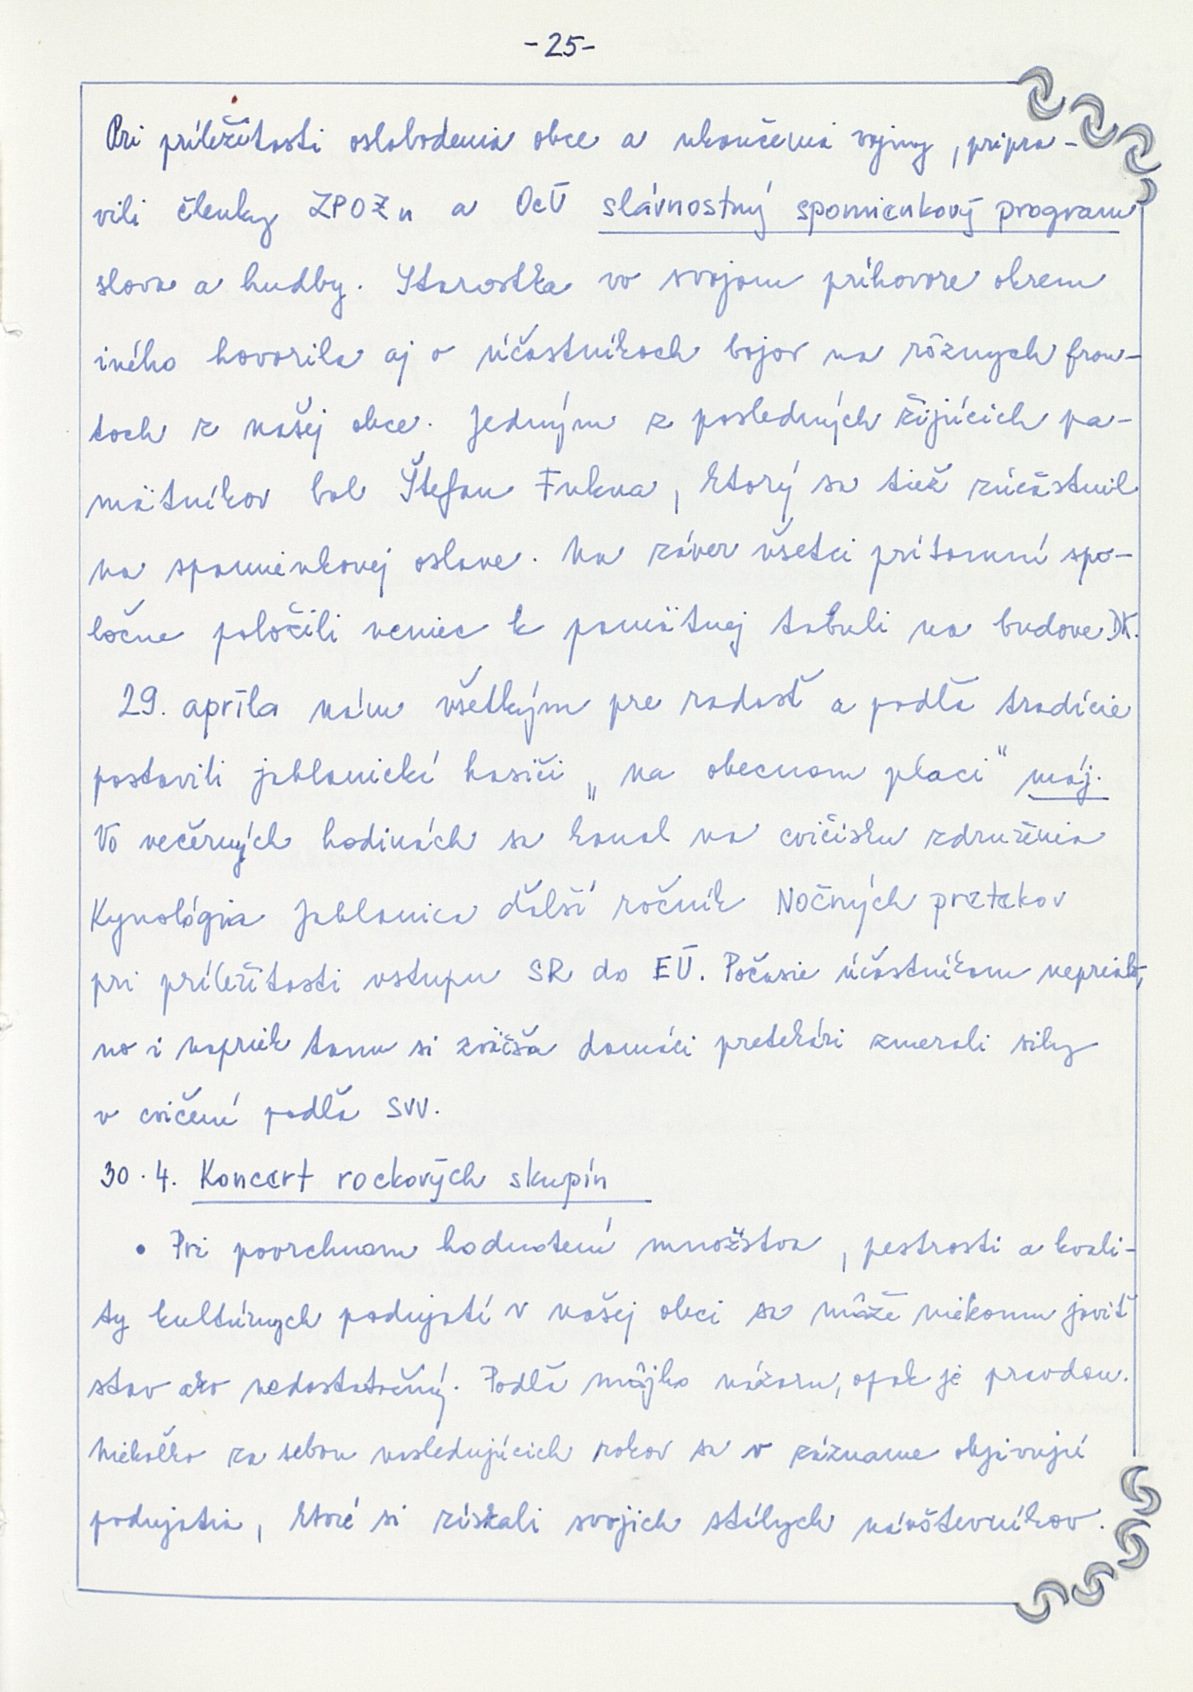 -25-
Pri príležitosti oslobodenia obce a ukončenia vojny, pripra-
vili členky ZPOZu a OcÚ slávnostný spomienkový program
slova a hudby. Starostka vo svojom príhovore okrem
iného hovorila aj o účastníkoch bojov na rôznych fron-
toch z našej obce. Jedným z posledných žijúcich pa-
mätníkov bol Štefan Fukna, ktorý sa tiež zúčastnil
na spomienkovej oslave. Na záver všetci prítomní spo-
ločne položili veniec k pamätnej tabuli na budove DK.
29. apríla nám všetkým pre radosť a podľa tradície
postavili jablonickí hasiči „na obecnom placi" máj.
Vo večerných hodinách sa konal na cvičisku združenia
Kynológia Jablonica ďalší ročník Nočných pretekov
pri príležitosti vstupu SR do EÚ. Počasie účastníkom neprialo,
no i napriek tomu si zväčša domáci pretekári zmerali sily
v cvičení podľa SVV.
30.4. Koncert rockových skupín
• Pri povrchnom hodnotení množstva, pestrosti a kvali-
ty kultúrnych podujatí v našej obci sa môže niekomu javiť
stav ako nedostatočný. Podľa môjho názoru, opak je pravdou.
Niekoľko za sebou nasledujúcich rokov sa v zázname objavujú
podujatia, ktoré si získali svojich stálych návštevníkov.